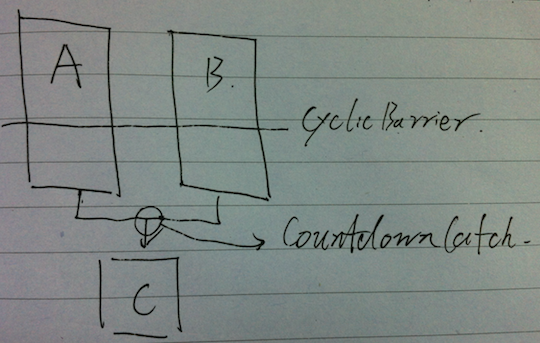 A
B.
CyclicBarrier.
CountdownLatch.
C